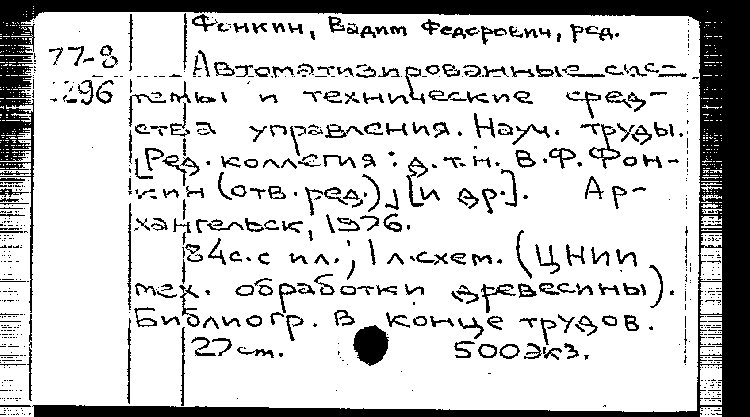 Фонкин, Вадим Федорович, ред.
77-8
296
Автоматизированные сис-
темы и технические сред-
ства управления. Науч. труды.
[Ред. коллегия: д.т.н. В.Ф. Фон-
кин (отв. ред.), [и др.]. Ар-
хангельск, 1976.
84с. с ил.; 1 л. схем. (ЦНИИ
мех. обработки древесины).
Библиогр. в конце трудов.
27 см. 500 экз.